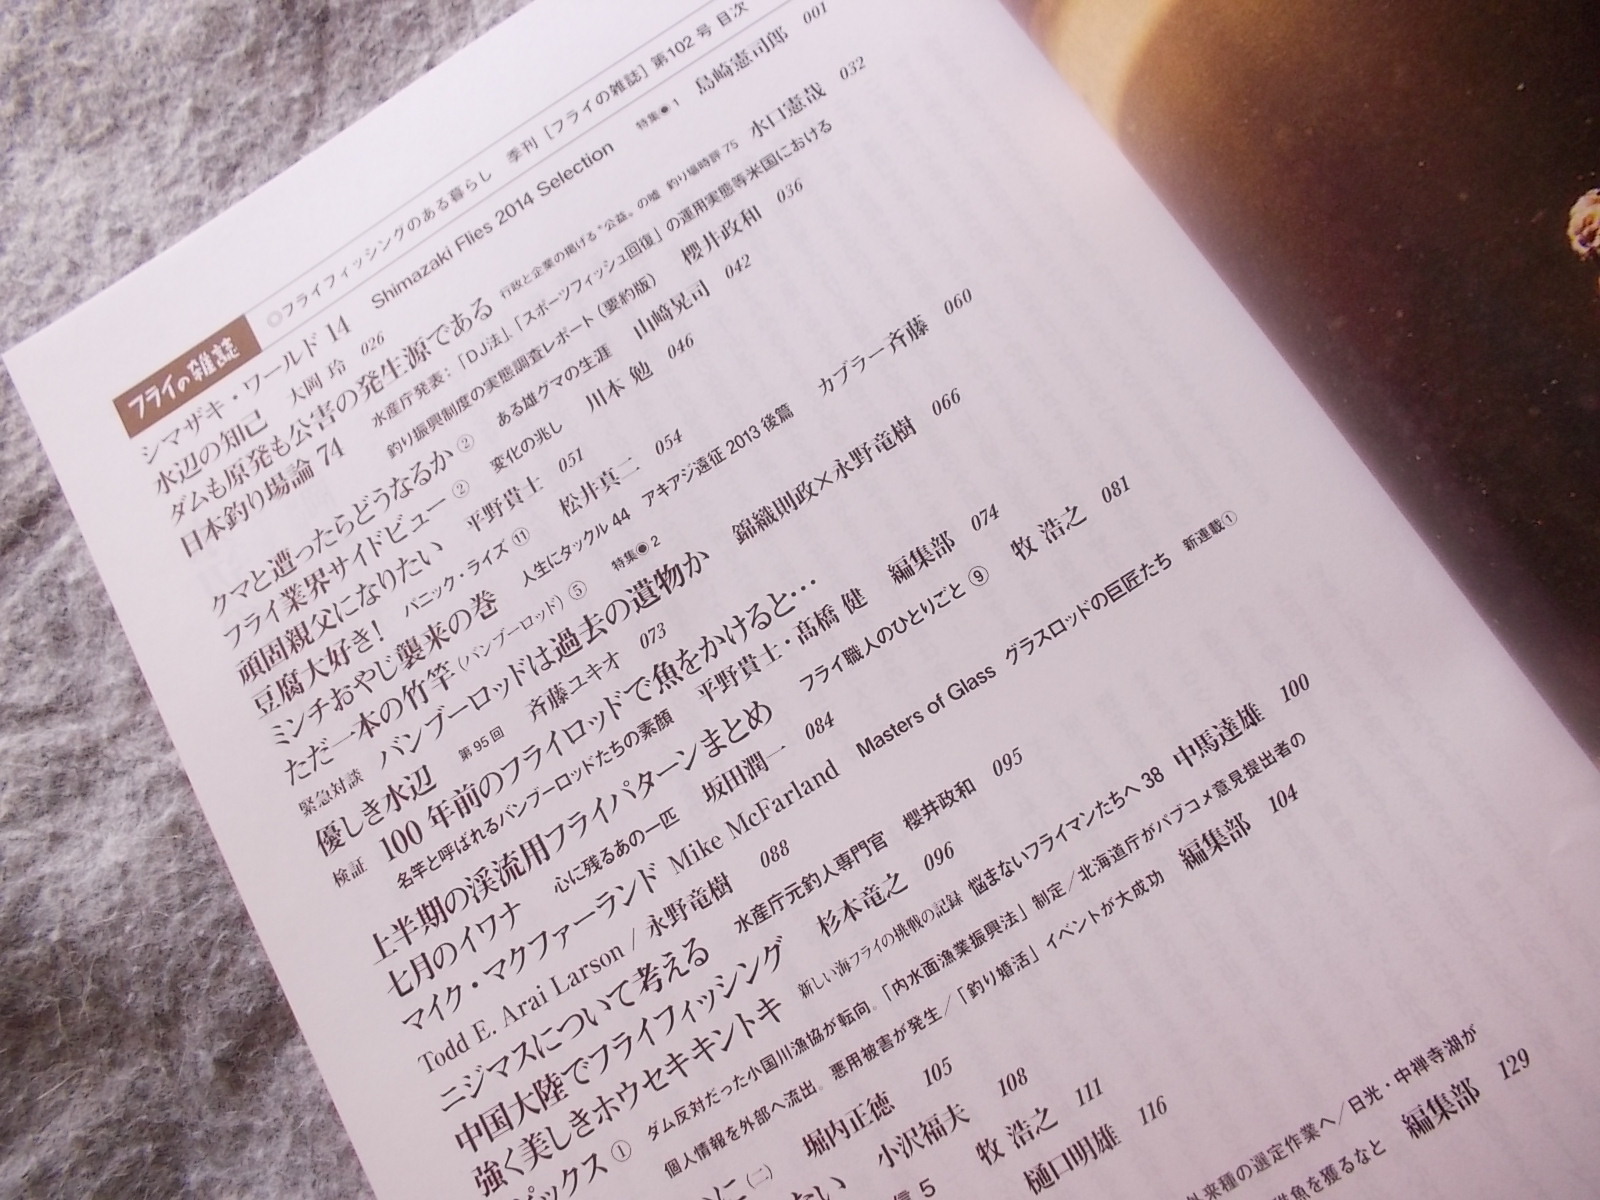 ◎フライフィッシングのある暮らし 季刊［フライの雑誌］第102号 目次
フライの雑誌
シマザキ・ワールド 14 Shimazaki Flies 2014 Selection 特集●1 島崎憲司郎 001
水辺の知己 大岡 玲 026
ダムも原発も公害の発生源である 行政と企業の掲げる“公益”の嘘 釣り場時評 75 水口憲哉 032
日本釣り場論 74 水産庁発表：「DJ法」、「スポーツフィッシュ回復」の運用実態等米国における
釣り振興制度の実態調査レポート（要約版） 櫻井政和 036
クマと遭ったらどうなるか② ある雄グマの生涯 山﨑晃司 042
フライ業界サイドビュー② 変化の兆し 川本 勉 046
頑固親父になりたい 平野貴士 051
豆腐大好き！ パニック・ライズ⑪ 松井真二 054
ミンチおやじ襲来の巻 人生にタックル 44 アキアジ遠征 2013 後篇 カブラー斉藤 060
ただ一本の竹竿（バンブーロッド）⑤ 特集●2
緊急対談 バンブーロッドは過去の遺物か 錦織則政×永野竜樹 066
優しき水辺 第95回 斉藤ユキオ 073
検証 100 年前のフライロッドで魚をかけると… 編集部 074
名竿と呼ばれるバンブーロッドたちの素顔 平野貴士・髙橋 健
上半期の渓流用フライパターンまとめ フライ職人のひとりごと⑨ 牧 浩之 081
七月のイワナ 心に残るあの一匹 坂田潤一 084
マイク・マクファーランド Mike McFarland Masters of Glass グラスロッドの巨匠たち 新連載①
Todd E. Arai Larson / 永野竜樹 088
ニジマスについて考える 水産庁元釣人専門官 櫻井政和 095
中国大陸でフライフィッシング 杉本竜之 096
強く美しきホウセキキントキ 新しい海フライの挑戦の記録 悩まないフライマンたちへ 38 中馬達雄 100
ピックス① ダム反対だった小国川漁協が転向。「内水面漁業振興法」制定／北海道庁がパブコメ意見提出者の
個人情報を外部へ流出。悪用被害が発生／「釣り婚活」イベントが大成功 編集部 104
に（二） 堀内正徳 105
ない 小沢福夫 108
信 5 牧 浩之 111
樋口明雄 116
外来種の選定作業へ／日光・中禅寺湖が
魚を獲るなと 編集部 129